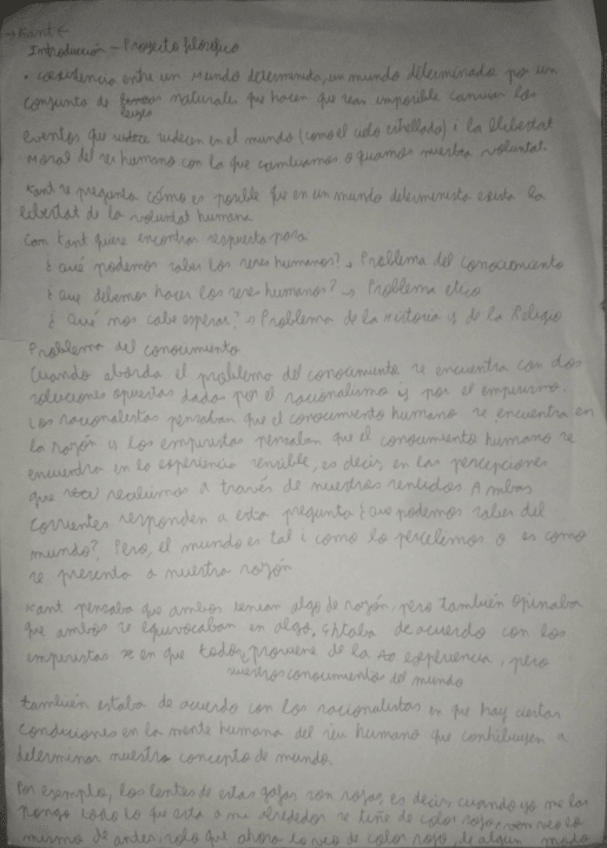 → Kant ←
Introducción - Proyecto filosófico
• coexistencia entre un Mundo determinista, un mundo determinado por un
conjunto de leyes naturales que hacen que sean imposible cambiar los
eventos que suceden en el mundo (como el cielo estrellado) i la llibertat
Moral del ser humano con la que cambiamos o guiamos nuestra voluntat.
Kant se pregunta cómo es posible que en un mundo determinista exista la
libertat de la voluntat humana
Com Kant quiere encontrar respuesta para
¿ qué podemos saber los seres humanos? → Problema del conocimiento
¿ que debemos hacer los seres humanos? → Problema etico
¿ Qué nos cabe esperar? → Problema de la Historia y de la Religio
Problema del conocimiento
Cuando aborda el problema del conocimiento se encuentra con dos
soluciones opuestas dadas por el racionalismo y por el empirismo.
Los racionalistas pensaban que el conocimiento humano se encuentra en
la razón y los empiristas pensaban que el conocimiento humano se
encuentra en la experiencia sensible, es decir, en las percepciones
que recibimos a través de nuestros sentidos Ambas
corrientes responden a esta pregunta ¿ que podemos saber del
mundo?, Pero, el mundo es tal i como lo percibimos o es como
se presenta a nuestra razón
Kant pensaba que ambos tenian algo de razón, pero también opinaba
que ambos se equivocaban en algo, Estaba de acuerdo con los
empiristas en que todos, proviene de la experiencia, pero
nuestros conocimientos del mundo
también estaba de acuerdo con los racionalistas en que hay ciertas
condiciones en la mente humana del ser humano que contribuyen a
determinar nuestro concepto de mundo.
Por exemplo, los lentes de estas gafas son rojas, es decir, cuando yo me las
pongo todo lo que esta a mi alrededor se tiñe de color rojo, veo lo
mismo de antes, solo que ahora lo veo de color rojo, de algun modo